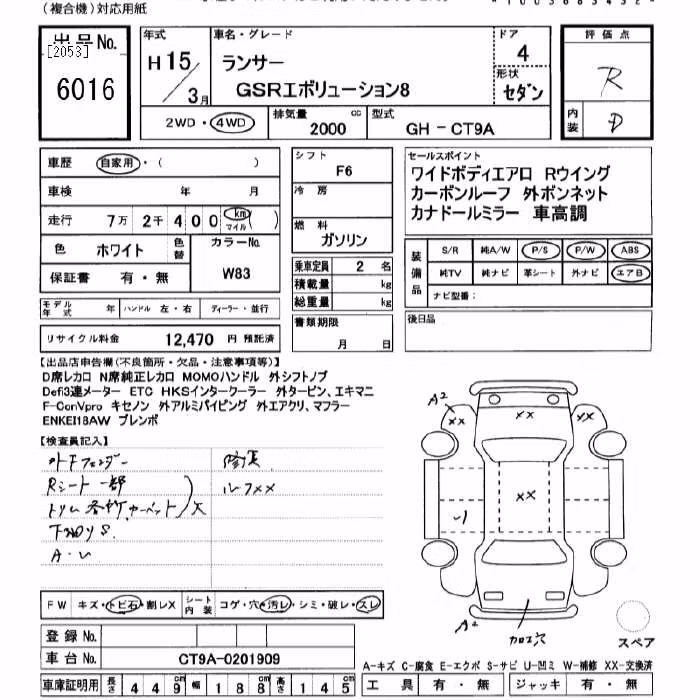 (複合機)対応用紙
出品No.
[2053]
6016
年式
H 15/3月
車名・グレード
ランサー
GSRエボリューション8
ドア
4
形状
セダン
評価点
R
内装
D
2WD・4WD
排気量
2000 cc
型式
GH－CT9A
車歴 自家用・( )
車検 年 月
走行 7万 2千 400 (km マイル)
色 ホワイト 色替
カラーNo.
W83
保証書 有・無
モデル年式 年 ハンドル 左・右 ディーラー・並行
リサイクル料金 12,470 円 預託済
シフト
F6
冷房
燃料
ガソリン
乗車定員 2 名
積載量 kg
総重量 kg
書類期限
月 日
セールスポイント
ワイドボディエアロ Rウイング
カーボンルーフ 外ボンネット
カナドールミラー 車高調
装備品
S/R 純A/W P/S P/W ABS
純TV 純ナビ 革シート 外ナビ エアB
ナビ型番:
後日品
【出品店申告欄(不良箇所・欠品・注意事項等)】
D席レカロ N席純正レカロ MOMOハンドル 外シフトノブ
Defi3連メーター ETC HKSインタークーラー 外タービン、エキマニ
F-ConVpro キセノン 外アルミパイピング 外エアクリ、マフラー
ENKEI18AW ブレンボ
【検査員記入】
外Fフェンダー
Rシート一部
トリム各所カーペット
A・U
ルーフXX
A2
XX
XX
XX
A2
加工穴
スペア
FW キズ・トビ石・割レX
シート内装 コゲ・穴・汚レ・シミ・破レ・スレ
登録No.
車台No. CT9A-0201909
車庫証明用 長さ 449cm 幅 188cm 高さ 145cm
A-キズ C-腐食 E-エクボ S-サビ U-凹ミ W-補修 XX-交換済
工具 有・無 ジャッキ 有・無